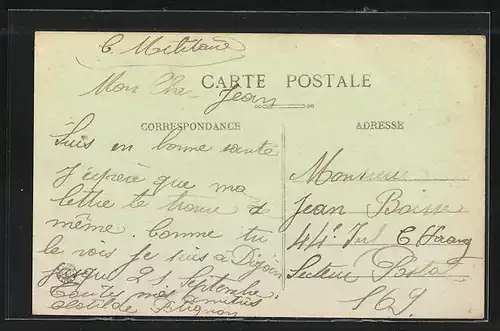 C. Militaire
Mon Cher Jean
CARTE POSTALE
CORRESPONDANCE
ADRESSE
Suis en bonne santé
J'espère que ma
lettre te trouve de
même. Comme tu
le vois je suis à Dijon
jusque 21 Septembre.
Toutes mes amitiés
Clotilde
Monsieur
Jean
44e Inf
Secteur Postal
169